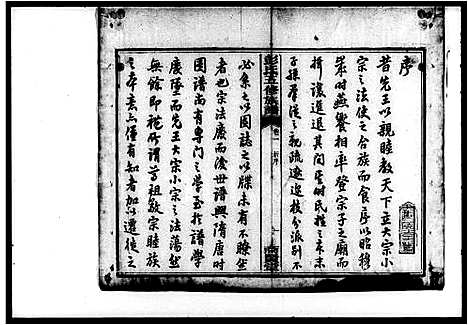 序
昔先王以親睦教天下立大宗小
宗之法使之合族而食序以昭穆
歲時燕饗相率登宗子之廟而
揖讓進退其間當時民程之未未
子孫屬從之親疏邐迤枝分派别不
彭氏五修族譜
卷一
必系之以圖誌之以牒未有不瞭然
者也宗法廢而後世譜興隋唐時
圖譜尚有專門之學至於譜學
廢墜而先王大宗小宗之法蕩然
無餘即禮所謂尊祖敬宗睦族
之本意亦僅有知者加以遷徙之